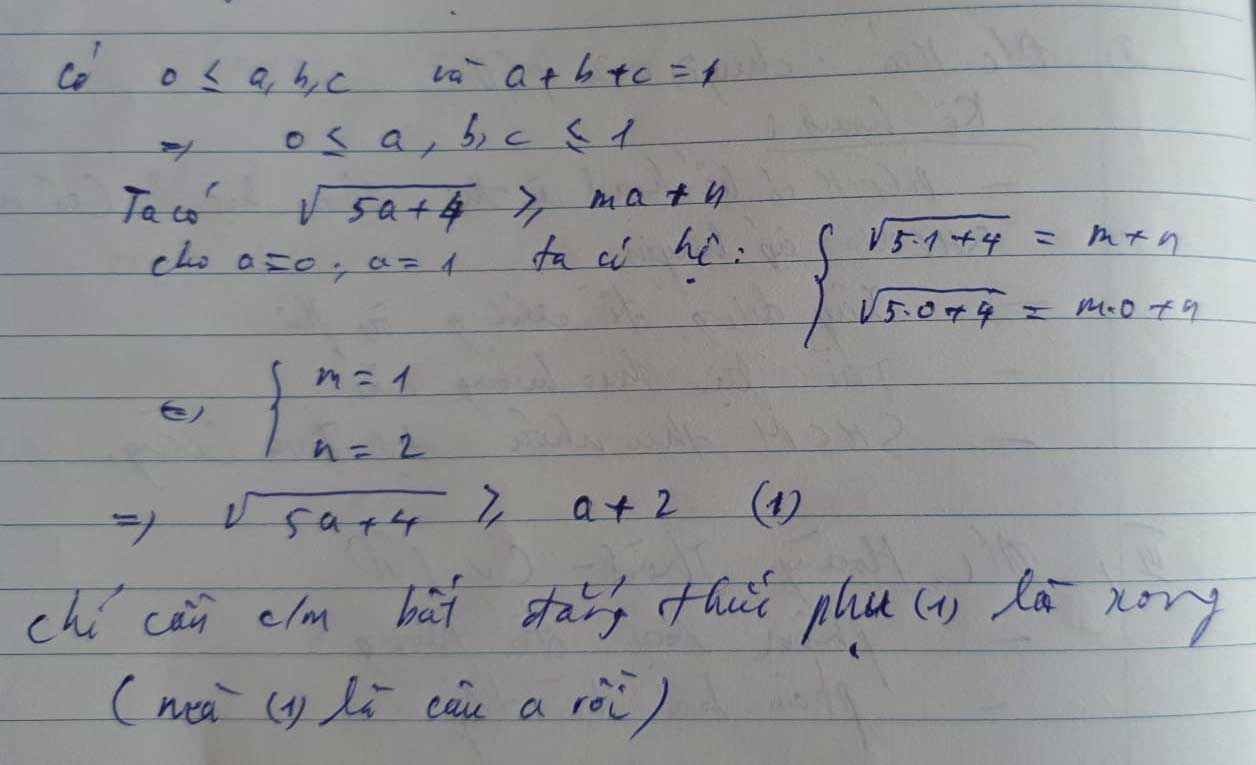 Có 0 ≤ a, b, c và a + b + c = 1
=> 0 ≤ a, b, c ≤ 1
Ta có √(5a+4) ≥ ma + n
cho a=0; a=1 ta có hệ: { √(5·1+4) = m+n
√(5·0+4) = m·0+n
<=> { m = 1
n = 2
=> √(5a+4) ≥ a+2 (1)
chỉ cần c/m bất đẳng thức phụ (1) là xong
(mà (1) là câu a rồi)